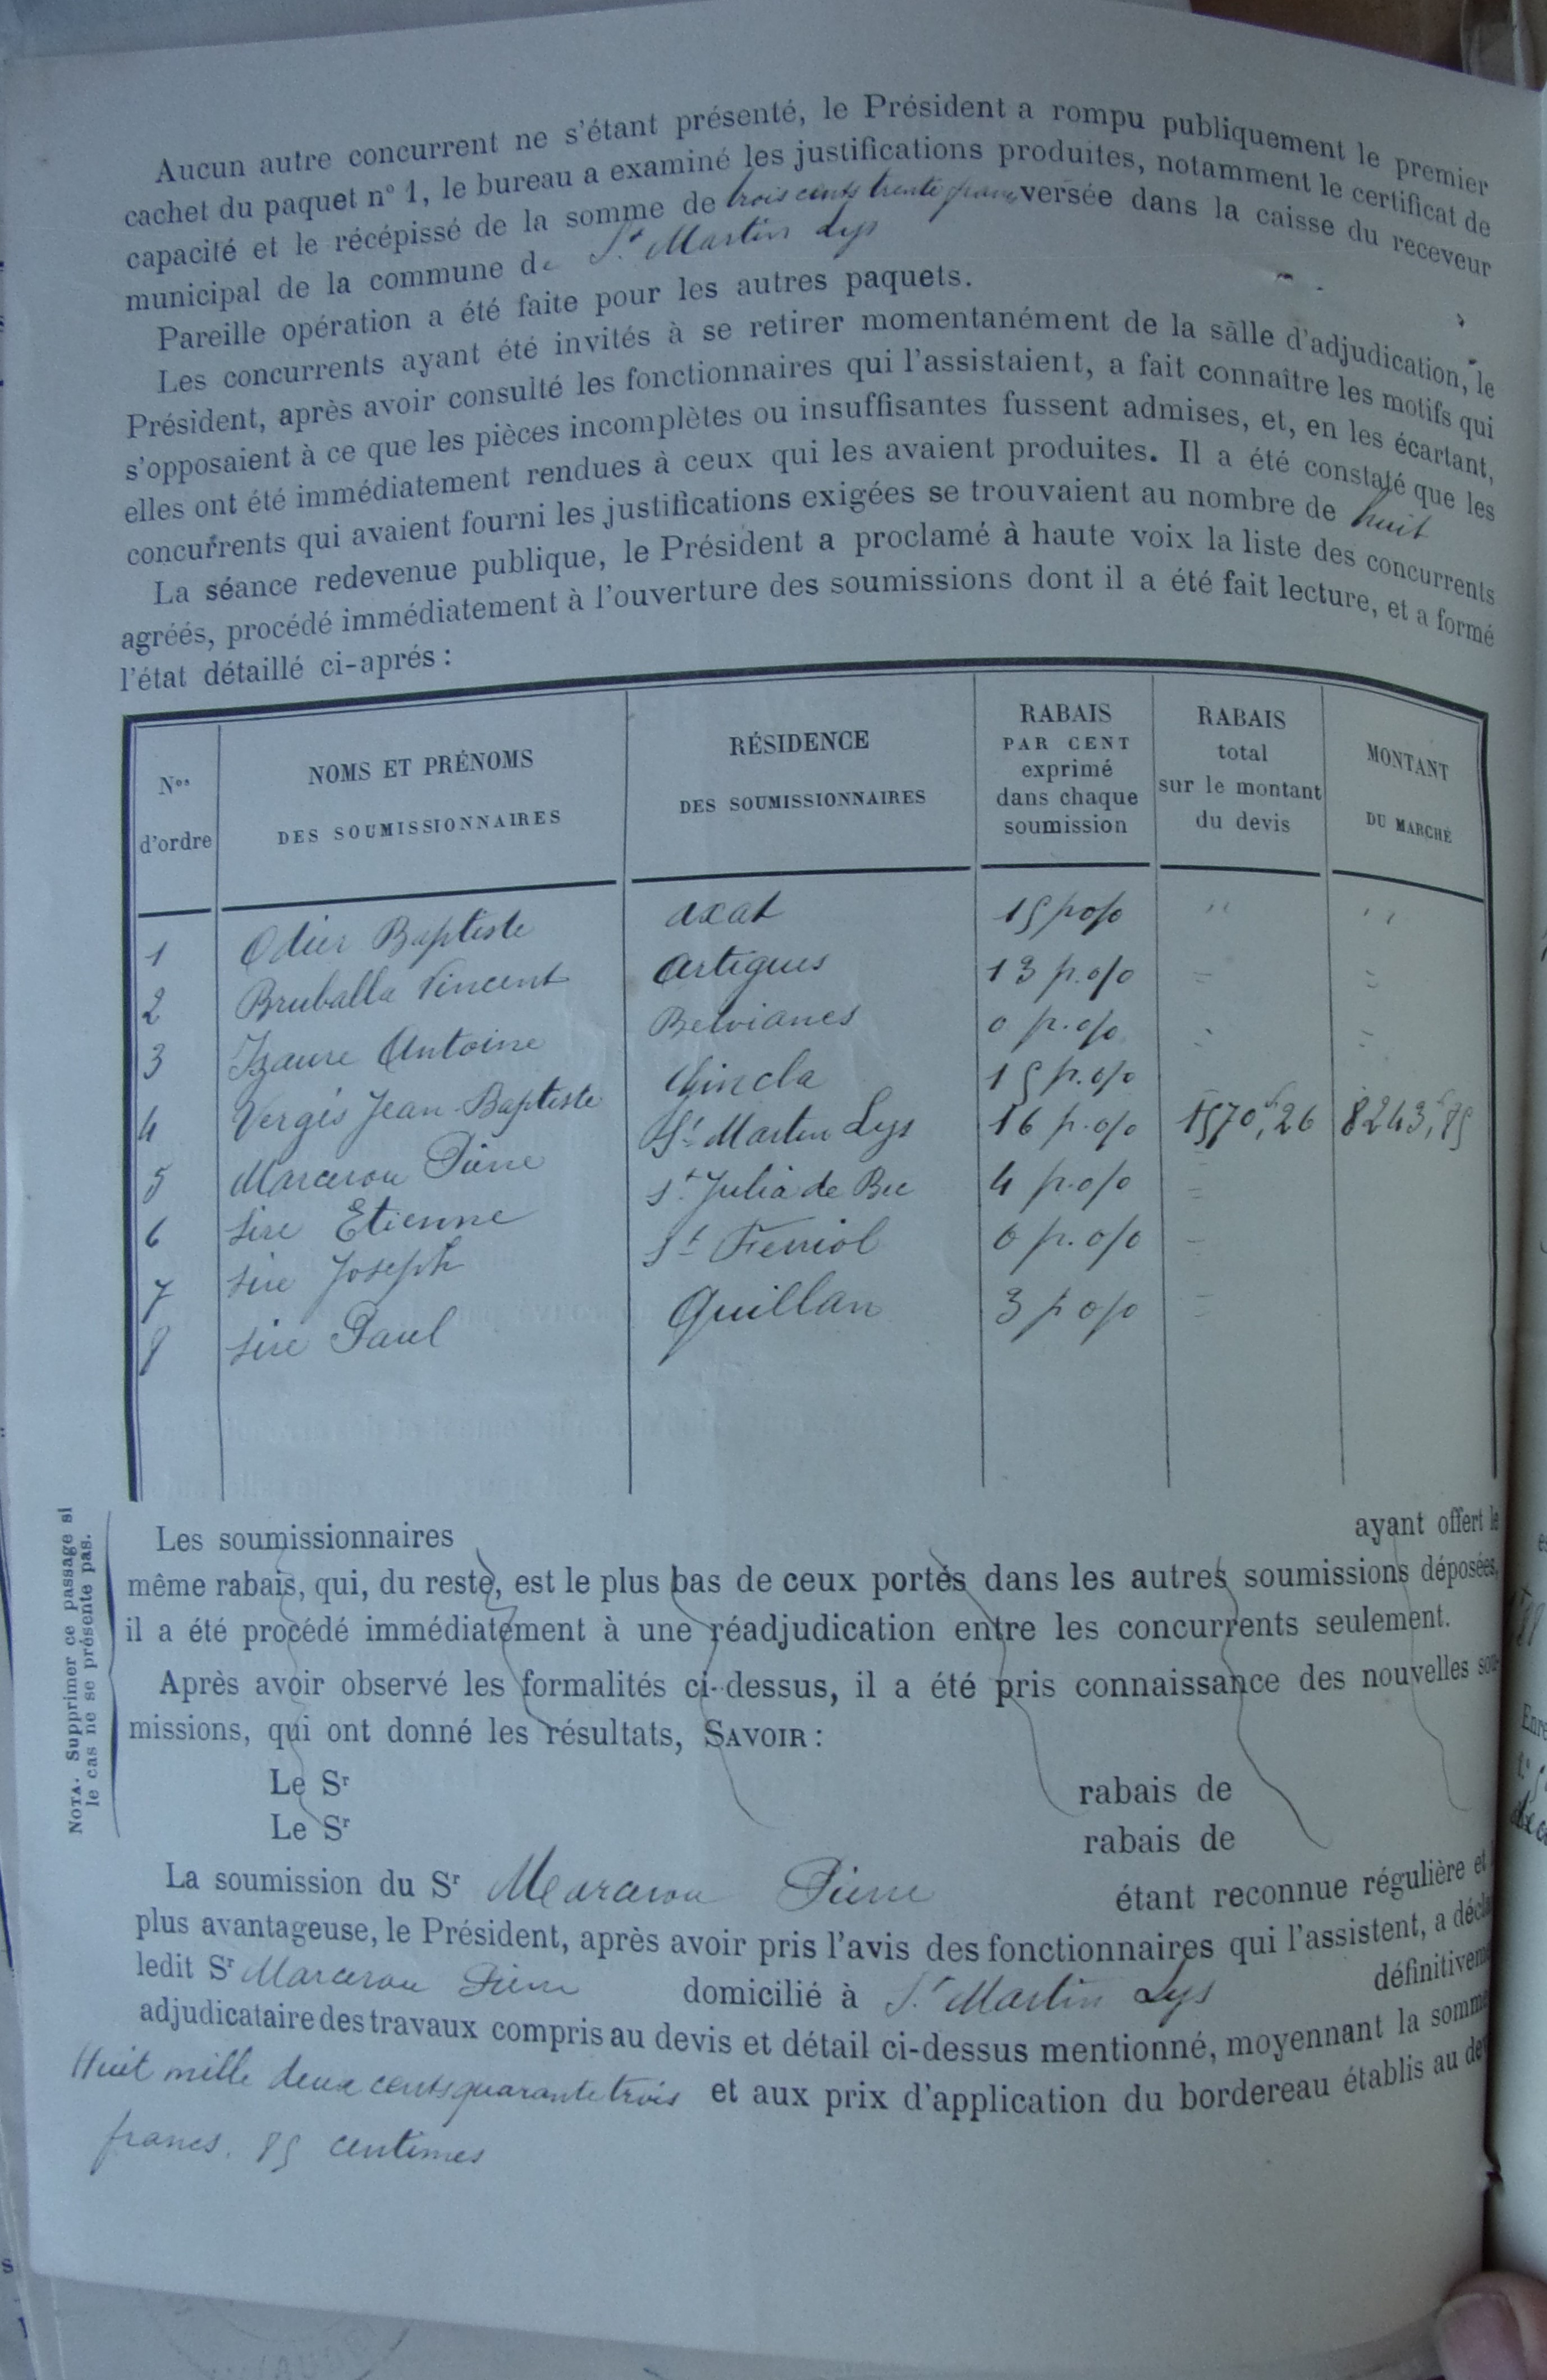 Aucun autre concurrent ne s'étant présenté, le Président a rompu publiquement le premier
cachet du paquet n° 1, le bureau a examiné les justifications produites, notamment le certificat de
capacité et le récépissé de la somme de trois cents trente francs versée dans la caisse du receveur
municipal de la commune de St Martin Lys
Pareille opération a été faite pour les autres paquets.
Les concurrents ayant été invités à se retirer momentanément de la salle d'adjudication, le
Président, après avoir consulté les fonctionnaires qui l'assistaient, a fait connaître les motifs qui
s'opposaient à ce que les pièces incomplètes ou insuffisantes fussent admises, et, en les écartant,
elles ont été immédiatement rendues à ceux qui les avaient produites. Il a été constaté que les
concurrents qui avaient fourni les justifications exigées se trouvaient au nombre de huit
La séance redevenue publique, le Président a proclamé à haute voix la liste des concurrents
agréés, procédé immédiatement à l'ouverture des soumissions dont il a été fait lecture, et a formé
l'état détaillé ci-aprés :
Nos d'ordre
NOMS ET PRÉNOMS DES SOUMISSIONNAIRES
RÉSIDENCE DES SOUMISSIONNAIRES
RABAIS PAR CENT exprimé dans chaque soumission
RABAIS total sur le montant du devis
MONTANT DU MARCHÉ
1 Odier Baptiste Axat 15 p o/o " "
2 Bruballa Vincent Artigues 13 p. o/o = =
3 Izaure Antoine Belvianes 0 p. o/o = =
4 Vergés Jean-Baptiste Gincla 15 p. o/o
5 Marcerou Pierre St Martin Lys 16 p. o/o 1570f,26 8243f,85
6 Sire Etienne St Julia de Bec 4 p. o/o =
7 Sire Joseph St Ferriol 6 p. o/o =
8 Sire Paul Quillan 3 p o/o =
NOTA. Supprimer ce passage si
le cas ne se présente pas.
Les soumissionnaires ayant offert le
même rabais, qui, du reste, est le plus bas de ceux portés dans les autres soumissions déposées,
il a été procédé immédiatement à une réadjudication entre les concurrents seulement.
Après avoir observé les formalités ci-dessus, il a été pris connaissance des nouvelles sou-
missions, qui ont donné les résultats, SAVOIR :
Le Sr rabais de
Le Sr rabais de
La soumission du Sr Marcerou Pierre étant reconnue régulière et
plus avantageuse, le Président, après avoir pris l'avis des fonctionnaires qui l'assistent, a décla
ledit Sr Marcerou Pierre domicilié à St Martin Lys définitiveme
adjudicataire des travaux compris au devis et détail ci-dessus mentionné, moyennant la somme
Huit mille deux cents quarante trois et aux prix d'application du bordereau établis au dev
francs. 85 centimes